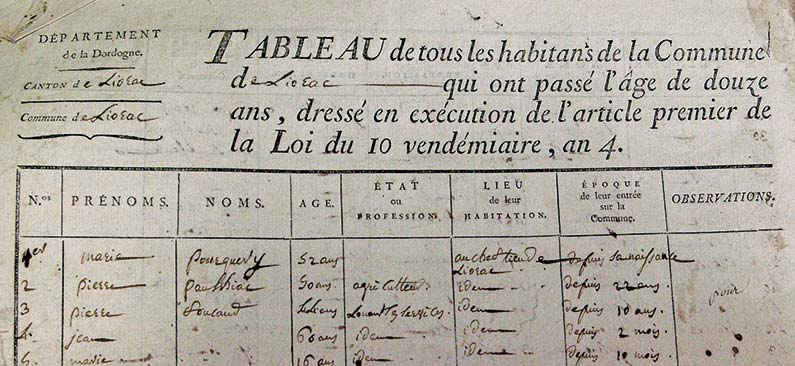 DÉPARTEMENT
de la Dordogne.
CANTON de Liorac
Commune de Liorac
TABLEAU de tous les habitans de la Commune
de Liorac qui ont passé l'âge de douze
ans, dressé en exécution de l'article premier de
la Loi du 10 vendémiaire, an 4.
N.os PRÉNOMS. NOMS. AGE. ÉTAT ou PROFESSION. LIEU de leur HABITATION. ÉPOQUE de leur entrée sur la Commune. OBSERVATIONS.
1er marie 52 ans au chef lieu de Liorac depuis sa naissance
2 pierre 50 ans idem depuis 22 ans.
3 pierre idem depuis 10 ans.
4. jean 60 ans idem idem depuis 2 mois.
5. marie 16 ans idem idem depuis 10 mois.
pour